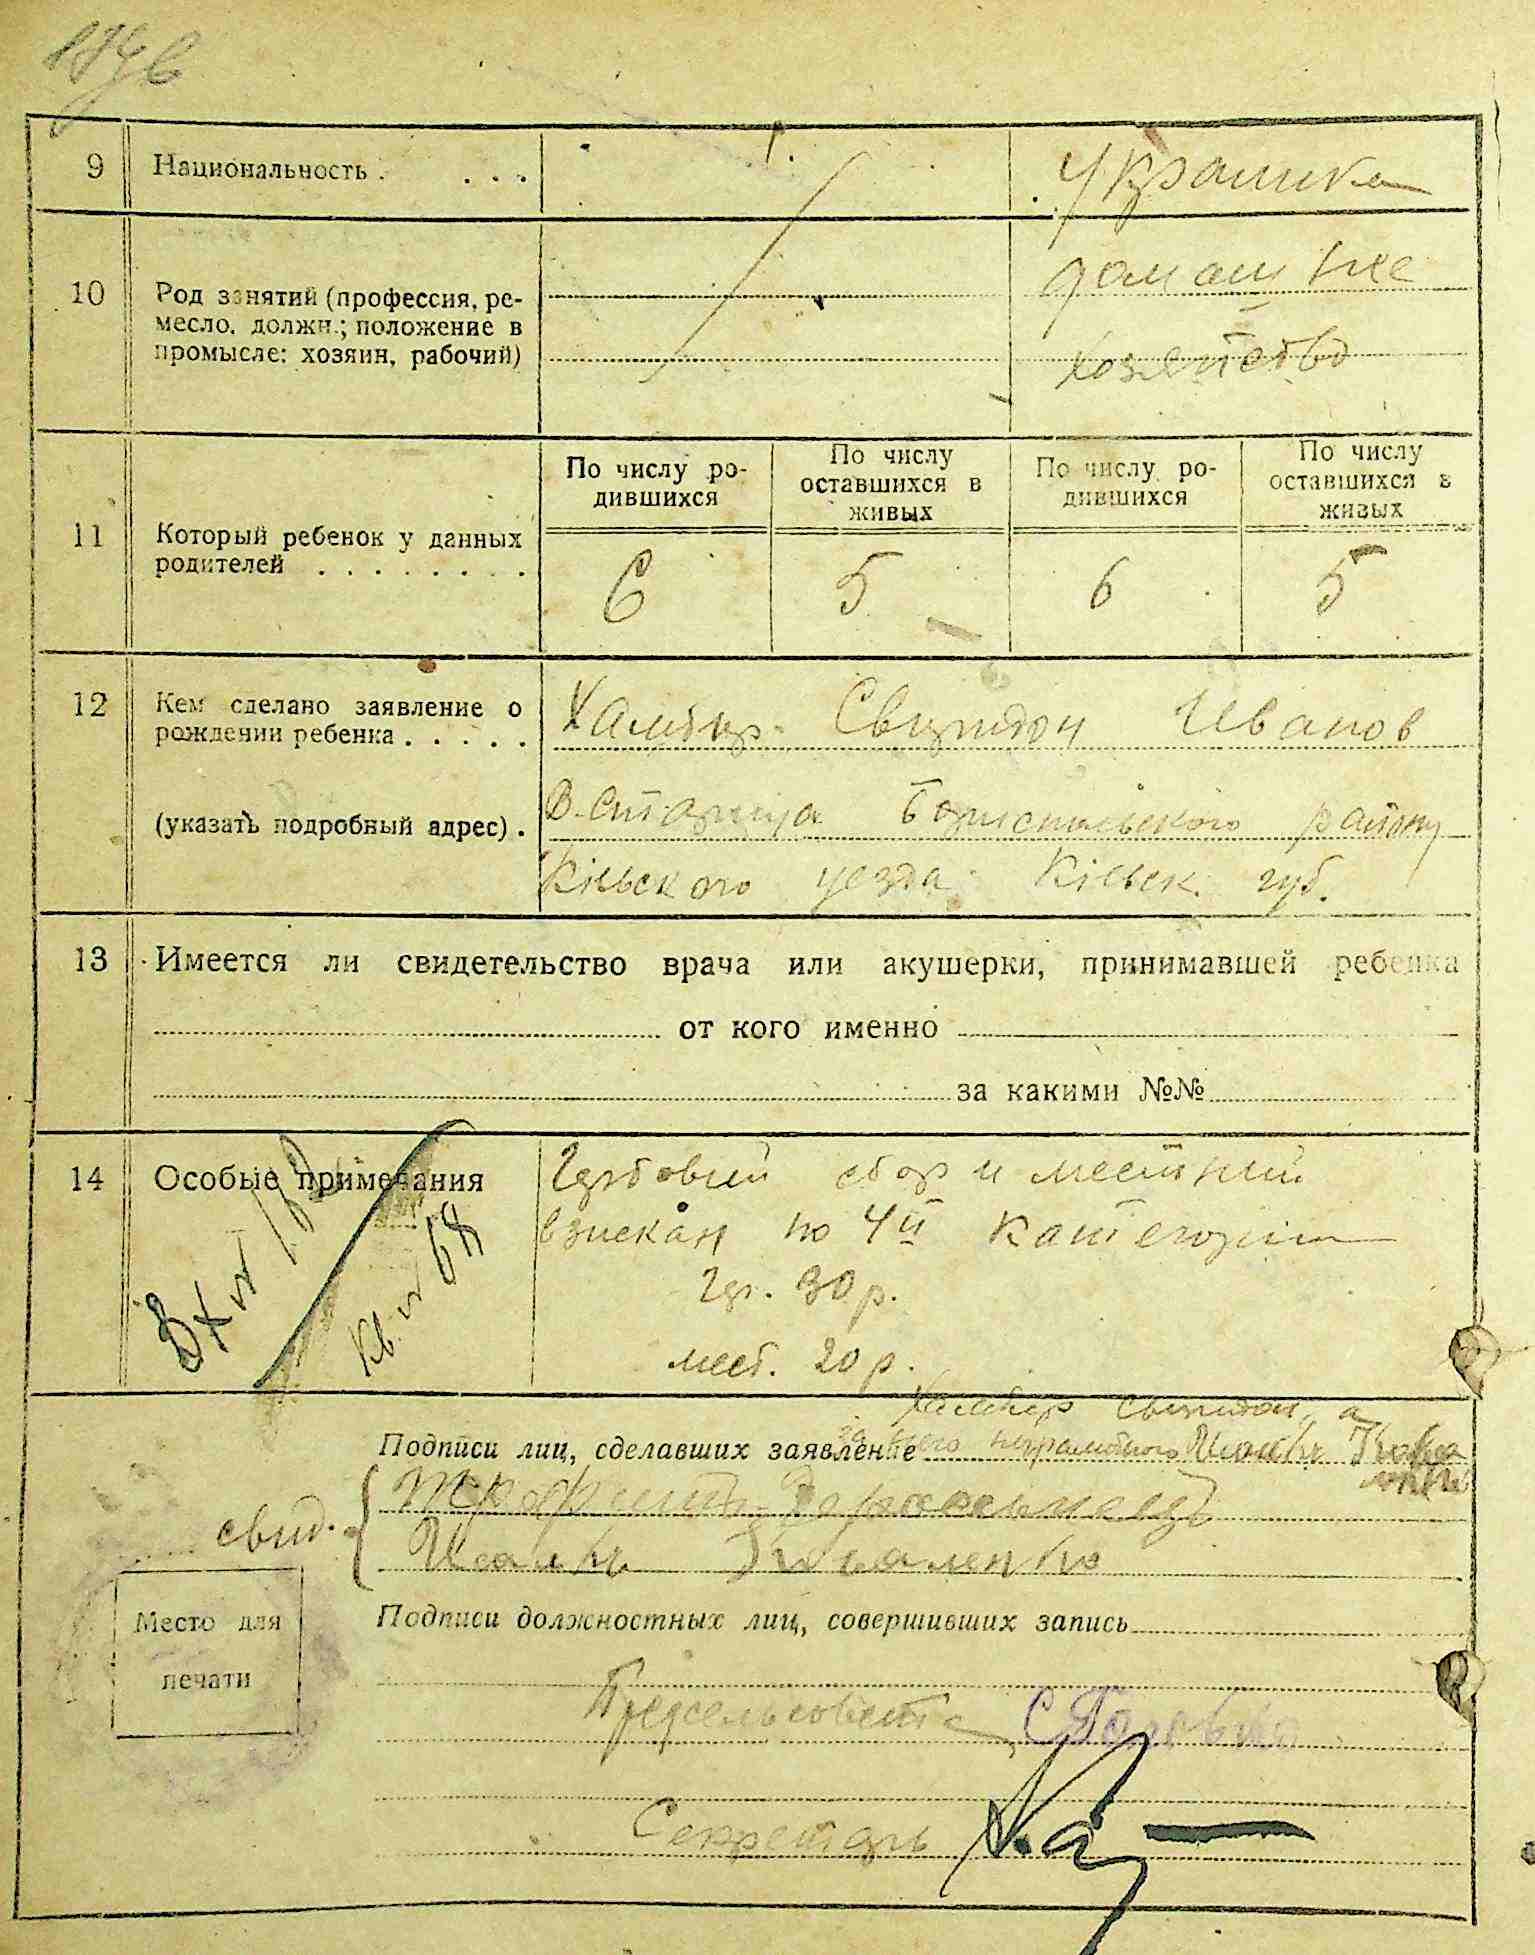 9 Национальность . . . . Украинка
10 Род занятий (профессия, ре-
месло, должн.; положение в
промысле: хозяин, рабочий)
домашнее
хозяйство
11 Который ребенок у данных
родителей . . . . . . . .
По числу ро-
дившихся
По числу
оставшихся в
живых
По числу ро-
дившихся
По числу
оставшихся в
живых
6 5 6 5
12 Кем сделано заявление о
рождении ребенка . . . . .
(указать подробный адрес) .
Свиридон Иванов
В. Стариця Бориспольского району
Кіевского уезда Кіевск. губ.
13 Имеется ли свидетельство врача или акушерки, принимавшей ребенка
от кого именно
за какими №№
14 Особые примечания
Гербовий сбор и местний
взискан по 4й категории
гр. 30 р.
мест. 20 р.
Вх №
Кв. № 68
Подписи лиц, сделавших заявление
неграмотного
свид.
Коваленко
Место для
печати
Подписи должностных лиц, совершивших запись
Предсельсовета
Секретарь